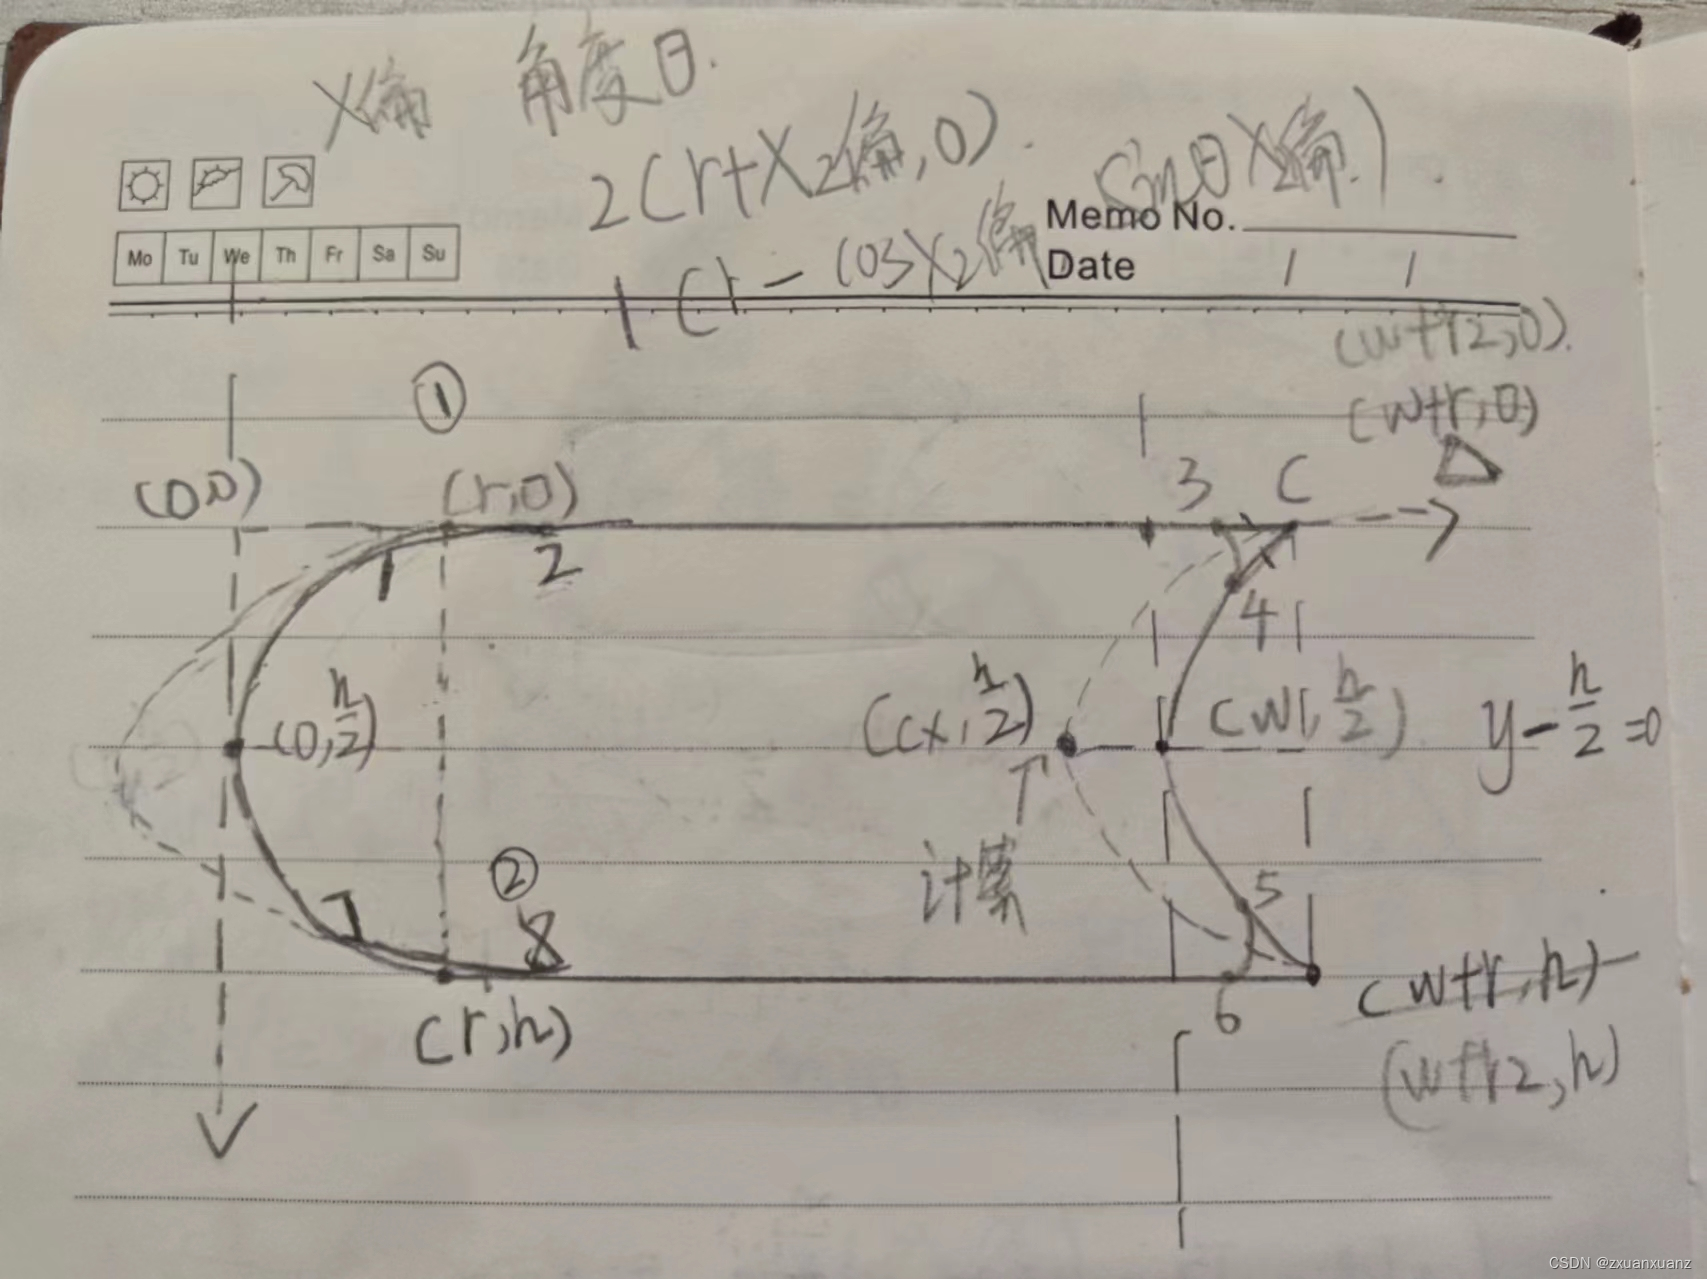 X偏 角度θ.
2(r+X2偏,0).
sinθX2偏.)
Memo No.
1(r-cosX2偏
Date / /
Mo Tu We Th Fr Sa Su
(w+r2,0).
①
(w+r,0)
(0,0)
(r,0)
3 C
1 2
4
(0,h/2)
(cx,h/2)
(w,h/2)
y-h/2=0
计算
②
7 8
5
6
(w+r,h)
(r,h)
(w+r2,h)
CSDN @zxuanxuanz